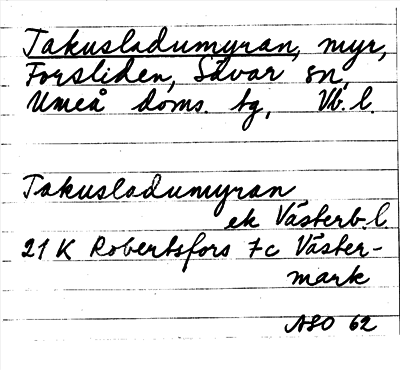 Takusladumyran, myr,
Forsliden, Sävar sn,
Umeå doms. tg, Vb. l.
Takusladumyran
ek Västerb. l.
21 K Robertsfors 7c Väster-
mark
ASO 62